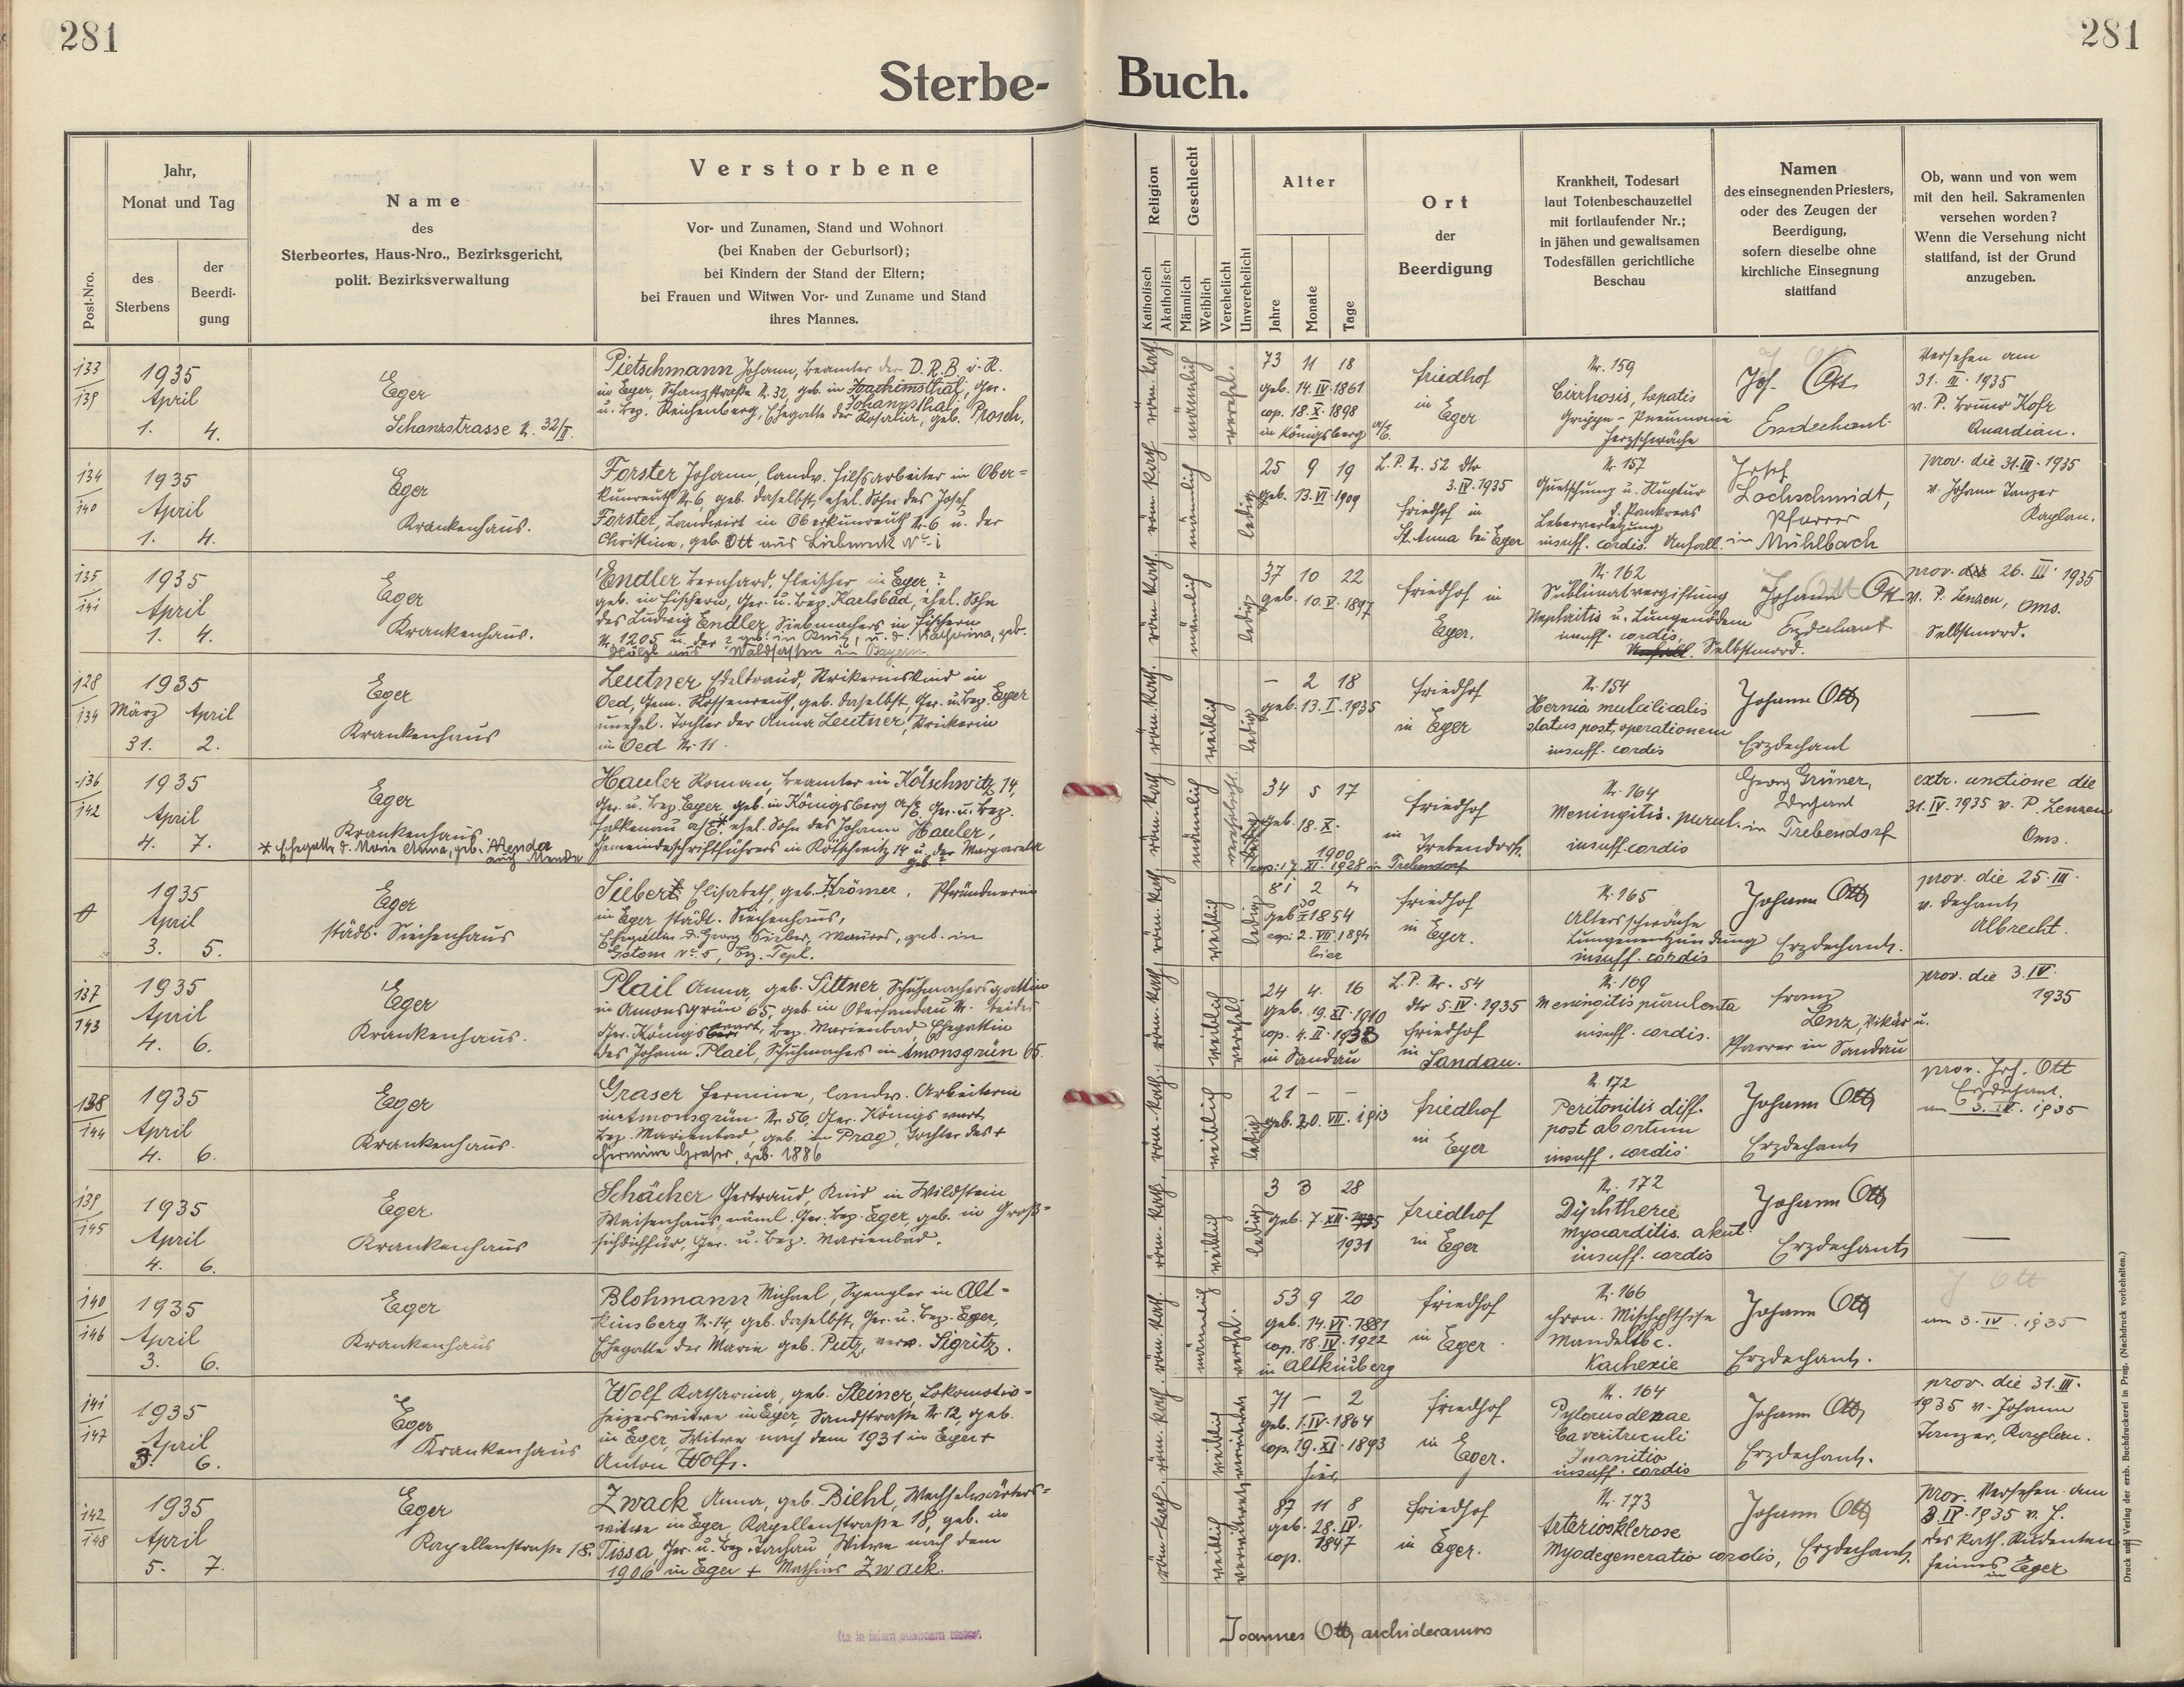 281
281
Sterbe- Buch.
Post-Nro.
Jahr,
Monat und Tag
des
Sterbens
der
Beerdi-
gung
Name
des
Sterbeortes, Haus-Nro., Bezirksgericht,
polit. Bezirksverwaltung
Verstorbene
Vor- und Zunamen, Stand und Wohnort
(bei Knaben der Geburtsort);
bei Kindern der Stand der Eltern;
bei Frauen und Witwen Vor- und Zuname und Stand
ihres Mannes.
Religion
Katholisch
Akatholisch
Geschlecht
Männlich
Weiblich
Verehelicht
Unverehelicht
Alter
Jahre
Monate
Tage
Ort
der
Beerdigung
Krankheit, Todesart
laut Totenbeschauzettel
mit fortlaufender Nr.;
in jähen und gewaltsamen
Todesfällen gerichtliche
Beschau
Namen
des einsegnenden Priesters,
oder des Zeugen der
Beerdigung,
sofern dieselbe ohne
kirchliche Einsegnung
stattfand
Ob, wann und von wem
mit den heil. Sakramenten
versehen worden?
Wenn die Versehung nicht
stattfand, ist der Grund
anzugeben.
133
139
1935
April
1. 4.
Eger
Schanzstrasse N. 32/II.
Pietschmann Johann, Beamter der D.R.B. i. R.
in Eger, Schanzstraße N. 32, geb. in Joachimsthal, Ger.
Johannsthal
u. Bez. Reichenberg, Ehegatte der Rosalia, geb. Prosch.
röm. kath.
männlich
verehel.
73 11 18
geb. 14. IV. 1861
cop. 18. X. 1898
in Königsberg a/E.
Friedhof
in
Eger
N. 159
Cirrhosis, hepatis
Grippe-Pneumonie
Herzschwäche
Joh. Ott
Erzdechant.
Versehen am
31. III. 1935
v. P. Bruno Kofr
Quardian.
134
140
1935
April
1. 4.
Eger
Krankenhaus.
Forster Johann, landw. Hilfsarbeiter in Ober-
kunreuth N. 6, geb. daselbst, ehel. Sohn des Josef
Forster, Landwirt in Oberkunreuth N. 6 u. der
Christine, geb. Ott aus Liebeneck Nº 1
röm. kath.
männlich
ledig
25 9 19
geb. 13. VI. 1909
L. P. N. 52 dto
3. IV. 1935
Friedhof in
St. Anna bei Eger
N. 157
Quetschung u. Ruptur
d. Pankreas
Leberverletzung
insuff. cordis. Unfall.
Josef
Lochschmidt,
Pfarrer
in Mühlbach
prov. die 31. III. 1935
v. Johann Tanzer
Kaplan.
135
141
1935
April
1. 4.
Eger
Krankenhaus.
Endler Bernhard, Fleischer in Eger ?
geb. in Fischern, Ger. u. Bez. Karlsbad, ehel. Sohn
des Ludwig Endler, Siebmachers in Fischern
N. 1205 u. der ? geb. in , u. d. Katharina, geb.
Hölzl aus Waldsassen in Bayern.
röm. kath.
männlich
ledig
37 10 22
geb. 10. V. 1897
Friedhof in
Eger.
N. 162
Sublimatvergiftung
Nephritis u. Lungenödem
insuff. cordis,
Selbstmord.
Johann Ott
Erzdechant
prov. die 26. III. 1935
v. P. Lenzen, Oms.
Selbstmord.
128
134
1935
März April
31. 2.
Eger
Krankenhaus
Leutner Edeltraud, Strikerinskind in
Oed, Gem. Rossenreuth, geb. daselbst, Ger. u. Bez. Eger
unehel. Tochter der Anna Leutner, Strikerin
in Oed N. 11.
röm. kath.
weiblich
ledig
— 2 18
geb. 13. I. 1935
Friedhof
in Eger
N. 154
Hernia umbilicalis
status post, operationem
insuff. cordis
Johann Ott
Erzdechant
—
136
142
1935
April
4. 7.
Eger
Krankenhaus
* Ehegatte d. Marie Anna, geb. Menda
auch Mende
Hauler Roman, Beamter in Kötschwitz 14,
Ger. u. Bez. Eger, geb. in Königsberg a/E, Ger. u. Bez.
Falkenau a/E.* ehel. Sohn des Johann Hauler,
Gemeindeschriftführers in Kötschwitz 14 u. der Margareta
geb.
röm. kath.
männlich
verehelicht
34 5 17
geb. 18. X.
1900
cop. 17. XI. 1928 in Trebendorf
Friedhof
in
Trebendorf.
N. 164
Meningitis. purul.
insuff. cordis
Georg Grüner,
Dechant
in Trebendorf
extr. unctione die
31. IV. 1935 v. P. Lenzen
Oms.
1935
April
3. 5.
Eger
städt. Siechenhaus
Siebert Elisabeth, geb. Krömer, Pfründnerin
in Eger städt. Siechenhaus,
Ehegattin d. Georg Sieber, Maurer, geb. in
Gstom Nº 5, Bez. Tepl.
röm. kath.
weiblich
ledig
81 2 4
geb. 30 I 1854
cop. 2. VII. 1894
hier
Friedhof
in
Eger.
N. 165
Altersschwäche
Lungenentzündung
insuff. cordis
Johann Ott
Erzdechant.
prov. die 25. III.
v. Dechant
Albrecht.
137
143
1935
April
4. 6.
Eger
Krankenhaus.
Plail Anna, geb. Sittner, Schuhmachersgattin
in Amonsgrün 65, geb. in Obersandau N. beides
Ger. Königswart, Bez. Marienbad, Ehegattin
des Johann Plail, Schuhmachers in Amonsgrün 65.
röm. kath.
weiblich
verehel.
24 4. 16
geb. 19. XI. 1910
cop. 4. II. 1933
in Sandau
L. P. Nr. 54
dto 5. IV. 1935
Friedhof
in
Sandau.
N. 169
Meningitis purulenta
insuff. cordis.
Franz
Lenz, Vikär u.
Pfarrer in Sandau
prov. die 3. IV.
1935
138
144
1935
April
4. 6.
Eger
Krankenhaus.
Graser Hermine, landw. Arbeiterin
in Amonsgrün N. 56, Ger. Königswart
Bez. Marienbad, geb. in Prag, Tochter des +
Hermine Graser, geb. 1886
röm. kath.
weiblich
ledig
21 — —
geb. 20. VII. 1913
Friedhof
in
Eger
N. 172
Peritonitis diff.
post abortum
insuff. cordis
Johann Ott
Erzdechant
prov. Joh. Ott
Erzdechant.
am 3. IV. 1935
139
145
1935
April
4. 6.
Eger
Krankenhaus
Schächer Gertraud, Kind in Wildstein
Waisenhaus, näml. Ger. Bez. Eger, geb. in Groß-
sichdichfür, Ger. u. Bez. Marienbad.
röm. kath.
weiblich
ledig
3 3 28
geb. 7. XII.
1931
Friedhof
in Eger
N. 172
Diphtherie
Myocarditis. akut
insuff. cordis
Johann Ott
Erzdechant
—
140
146
1935
April
3. 6.
Eger
Krankenhaus
Blohmann Michael, Spengler in Alt-
kinsberg N. 14, geb. daselbst, Ger. u. Bez. Eger,
Ehegatte der Marie geb. Putz, verw. Sigritz.
röm. kath.
männlich
verehel.
53 9 20
geb. 14. VI. 1881
cop. 18. IV. 1922
in Altkinsberg
Friedhof
in
Eger.
N. 166
chron. Mischphthise
Mandeltbc.
Kachexie
Johann Ott
Erzdechant.
J Ott
am 3. IV. 1935
141
147
1935
April
3. 6.
Eger
Krankenhaus
Wolf Katharina, geb. Steiner, Lokomotiv-
heizerswitwe in Eger, Sandstraße N. 12, geb.
in Eger, Witwe nach dem 1931 in Eger +
Anton Wolf.
röm. kath.
weiblich
verwitwet
71 — 2
geb. 1. IV. 1864
cop. 19. XI. 1893
hier
Friedhof
in
Eger.
N. 164
Pylorusstenae
Ca ventriculi
Inanitio
insuff. cordis
Johann Ott
Erzdechant.
prov. die 31. III.
1935 v. Johann
Tanzer, Kaplan.
142
148
1935
April
5. 7.
Eger
Kapellenstraße 18.
Zwack Anna, geb. Biehl, Wechselwärters-
witwe in Eger, Kapellenstraße 18, geb. in
Tissa, Ger. u. Bez. Tachau, Witwe nach dem
1906 in Eger + Mathias Zwack.
röm. kath.
weiblich
verwitwet
87 11 8
geb. 28. IV.
1847
cop.
Friedhof
in Eger.
N. 173
Arteriosklerose
Myodegeneratio cordis,
Johann Ott
Erzdechant.
prov. Versehen am
3. IV. 1935 v. J.
des kath. Studenten
heimes
in Eger
Joannes Ott, archidecanus
Druck und Verlag der erzb. Buchdruckerei in Prag. (Nachdruck vorbehalten.)